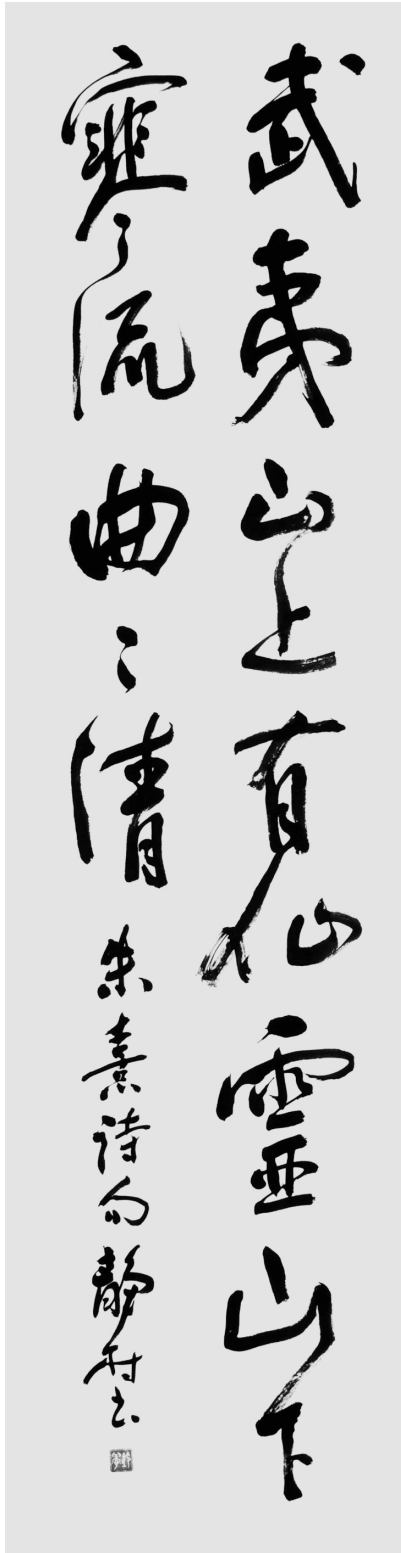 武夷山上有仙靈山下
寒流曲々清
朱熹诗句静村书